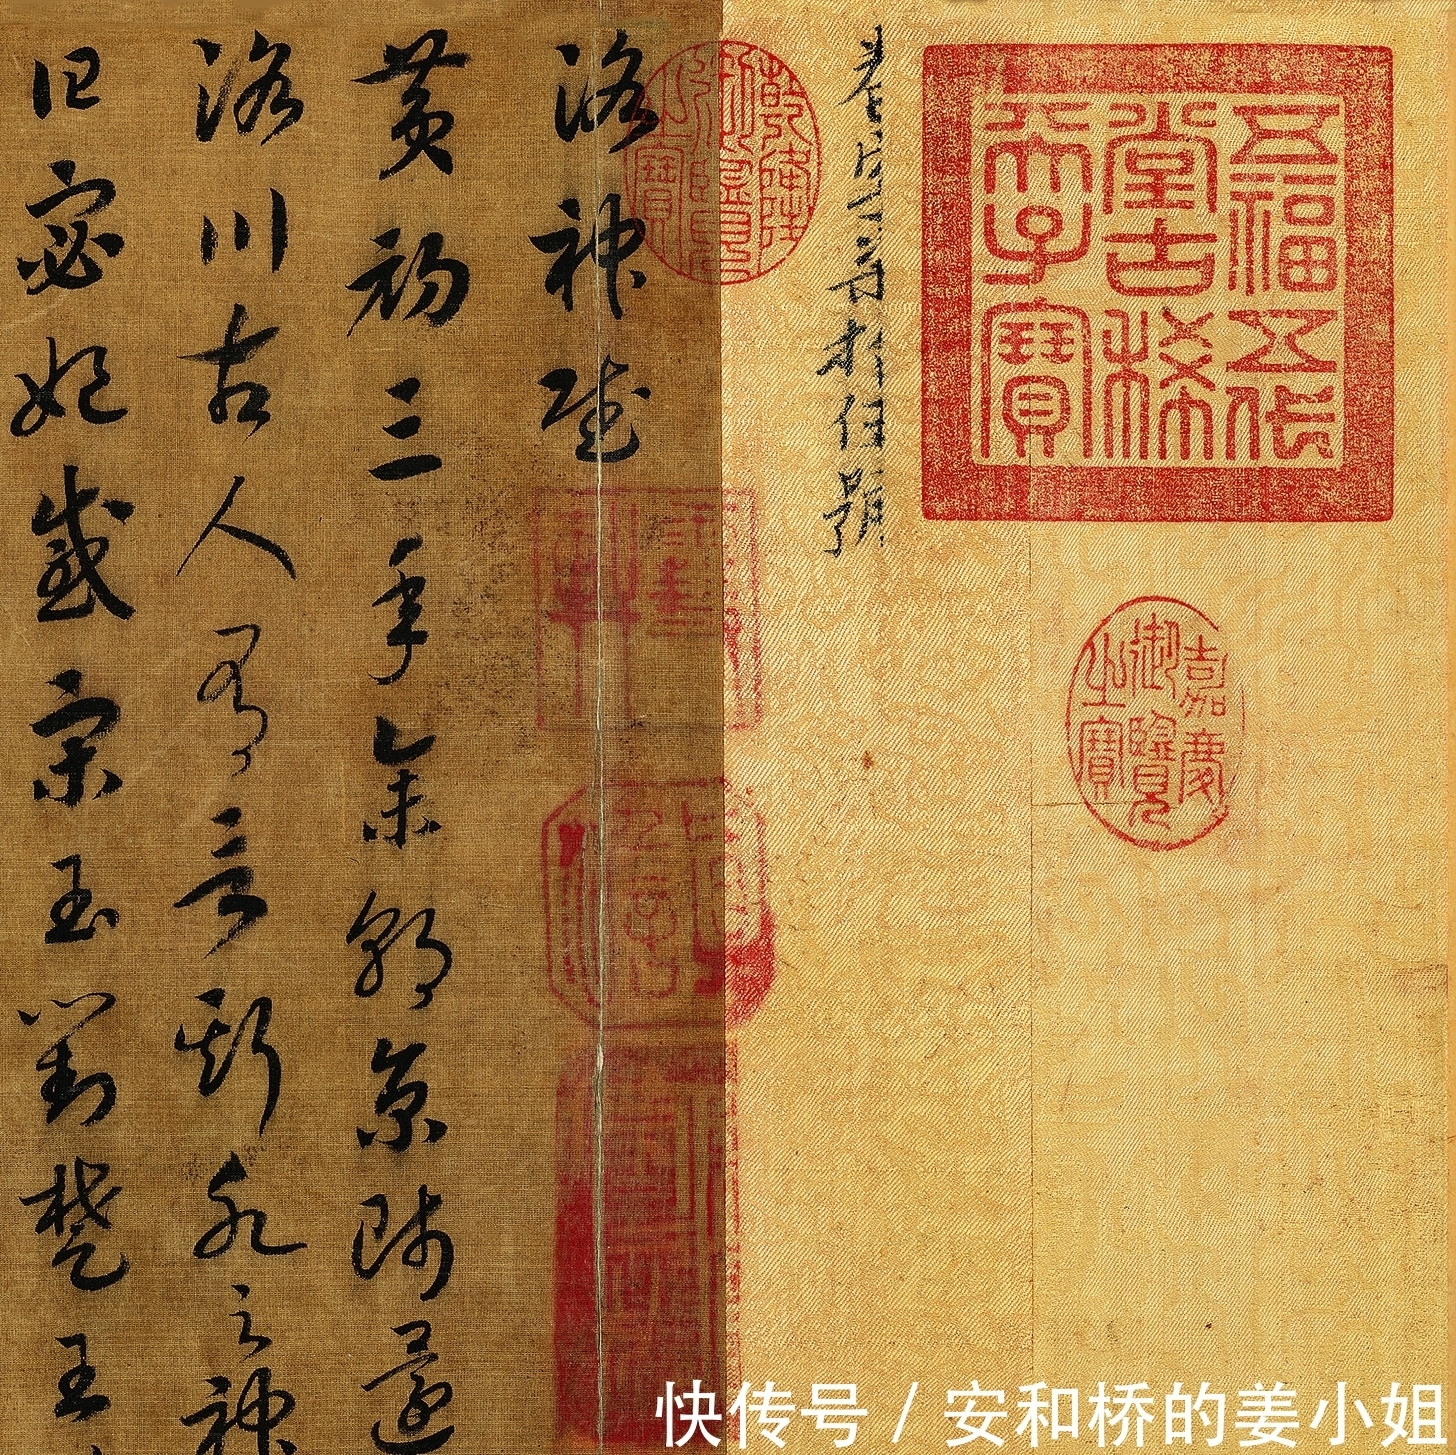 五福五代
堂古稀
天子寶
嘉慶
御覽
之寶
乾隆
御覽
之寶
洛神賦
黃初三年余朝京師還
洛川古人有言斯水之神
曰宓妃感宋玉對楚王
快传号 / 安和桥的姜小姐